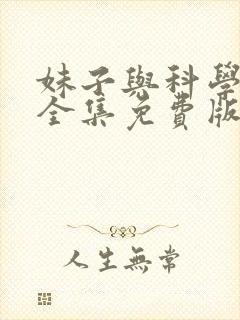 妹子與科學
全集免費版
人生無常